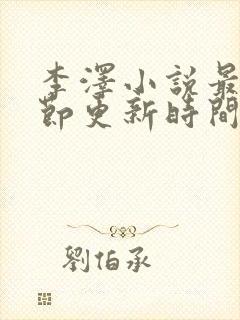 李澤小說最
節更新時間
劉伯承